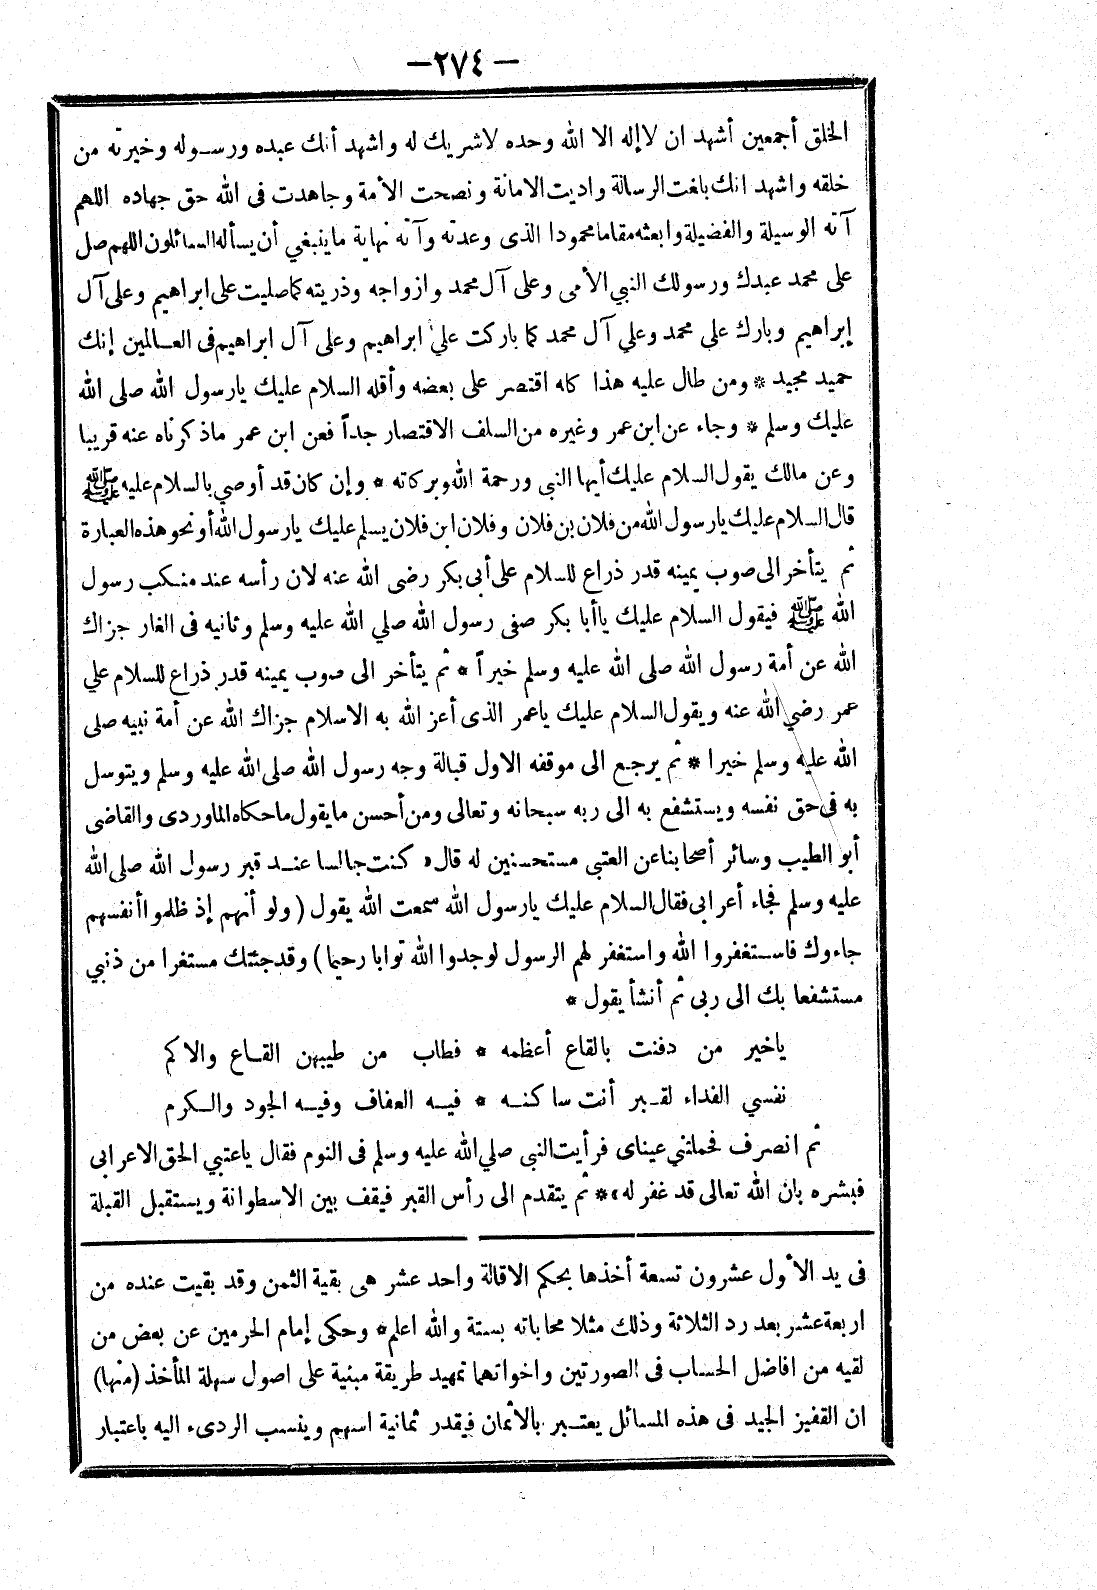 — ٢٧٤ —
الخلق أجمعين أشهد ان لا إله الا الله وحده لا شريك له واشهد أنك عبده ورسوله وخيرته من
خلقه واشهد انك بلغت الرسالة واديت الامانة ونصحت الأمة وجاهدت في الله حق جهاده اللهم
آته الوسيلة والفضيلة وابعثه مقاما محمودا الذى وعدته وآته نهاية ما ينبغي أن يسأله السائلون اللهم صل
على محمد عبدك ورسولك النبي الأمى وعلى آل محمد وازواجه وذريته كما صليت على ابراهيم وعلى آل
إبراهيم وبارك على محمد وعلي آل محمد كما باركت علي ابراهيم وعلى آل ابراهيم فى العالمين إنك
حميد مجيد * ومن طال عليه هذا كله اقتصر على بعضه وأقله السلام عليك يارسول الله صلى الله
عليك وسلم * وجاء عن ابن عمر وغيره من السلف الاقتصار جداً فعن ابن عمر ماذكرناه عنه قريبا
وعن مالك يقول السلام عليك أيها النبى ورحمة الله وبركاته * وإن كان قد أوصي بالسلام عليه ﷺ
قال السلام عليك يارسول الله من فلان بن فلان وفلان ابن فلان يسلم عليك يارسول الله أو نحو هذه العبارة
ثم يتأخر الى صوب يمينه قدر ذراع للسلام على أبى بكر رضى الله عنه لان رأسه عند منكب رسول
الله ﷺ فيقول السلام عليك ياأبا بكر صفى رسول الله صلي الله عليه وسلم وثانيه فى الغار جزاك
الله عن أمة رسول الله صلى الله عليه وسلم خيراً * ثم يتأخر الى صوب يمينه قدر ذراع للسلام علي
عمر رضي الله عنه ويقول السلام عليك ياعمر الذى أعز الله به الاسلام جزاك الله عن أمة نبيه صلى
الله عليه وسلم خيرا * ثم يرجع الى موقفه الاول قبالة وجه رسول الله صلى الله عليه وسلم ويتوسل
به فى حق نفسه ويستشفع به الى ربه سبحانه وتعالى ومن أحسن ما يقول ما حكاه الماوردى والقاضى
أبو الطيب وسائر أصحابنا عن العتبى مستحسنين له قال « كنت جالسا عند قبر رسول الله صلى الله
عليه وسلم فجاء أعرابى فقال السلام عليك يارسول الله سمعت الله يقول ( ولو أنهم إذ ظلموا أنفسهم
جاءوك فاستغفروا الله واستغفر لهم الرسول لوجدوا الله توابا رحيما ) وقد جئتك مستغرا من ذنبي
مستشفعا بك الى ربى ثم أنشأ يقول *
ياخير من دفنت بالقاع أعظمه * فطاب من طيبهن القاع والاكم
نفسي الفداء لقبر أنت ساكنه * فيه العفاف وفيه الجود والكرم
ثم انصرف فحملتني عيناى فرأيت النبى صلي الله عليه وسلم فى النوم فقال ياعتبي الحق الاعرابى
فبشره بان الله تعالى قد غفر له » * ثم يتقدم الى رأس القبر فيقف بين الاسطوانة ويستقبل القبلة
فى يد الأول عشرون تسعة أخذها بحكم الاقالة واحد عشر هى بقية الثمن وقد بقيت عنده من
اربعة عشر بعد رد الثلاثة وذلك مثلا محاباته بستة والله اعلم * وحكى إمام الحرمين عن بعض من
لقيه من افاضل الحساب فى الصورتين واخواتهما تمهيد طريقة مبنية على اصول سهلة المأخذ (منها)
ان القفيز الجيد فى هذه المسائل يعتبر بالأثمان فيقدر ثمانية اسهم وينسب الردىء اليه باعتبار